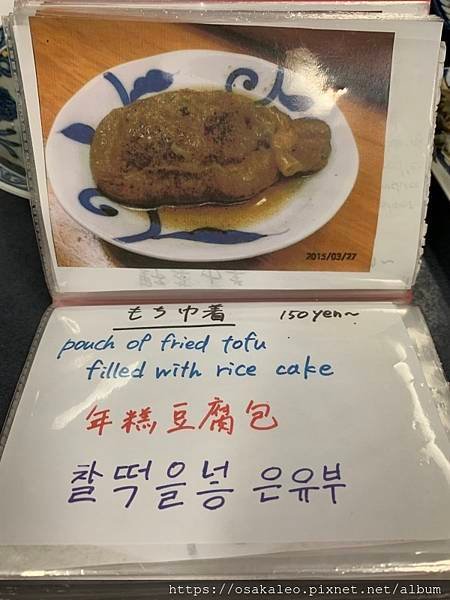 2015/03/27
もち巾着 150yen~
pouch of fried tofu
filled with rice cake
年糕豆腐包
찰떡을넣은유부
https://osakaleo.pixnet.net/album